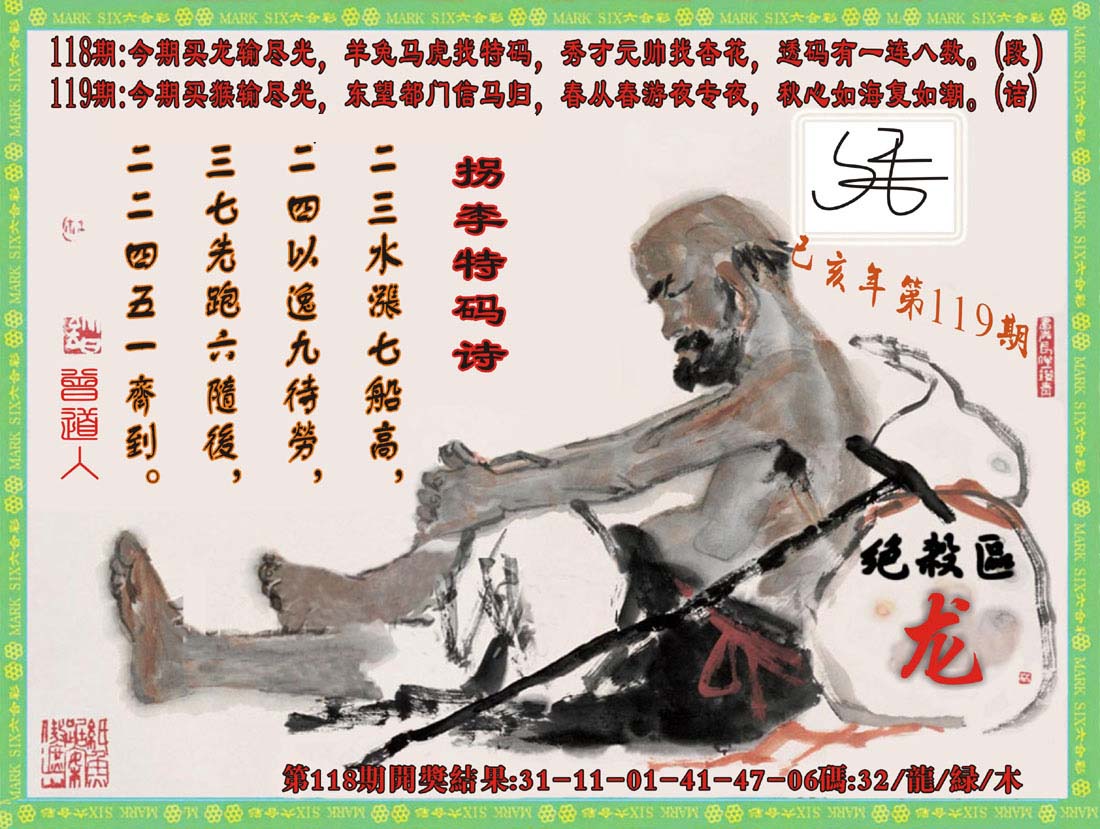 MARK SIX六合彩
118期:今期买龙输尽光，羊兔马虎找特码，秀才元帅找杏花，透码有一连八数。(段)
119期:今期买猴输尽光，东望都门信马归，春从春游夜专夜，秋心如海复如潮。(诘)
拐李特码诗
二三水漲七船高，
二四以逸九待勞，
三七先跑六隨後，
二二四五一齊到。
己亥年第119期
曾道人
绝殺區
龙
第118期開獎結果:31-11-01-41-47-06碼:32/龍/緑/木